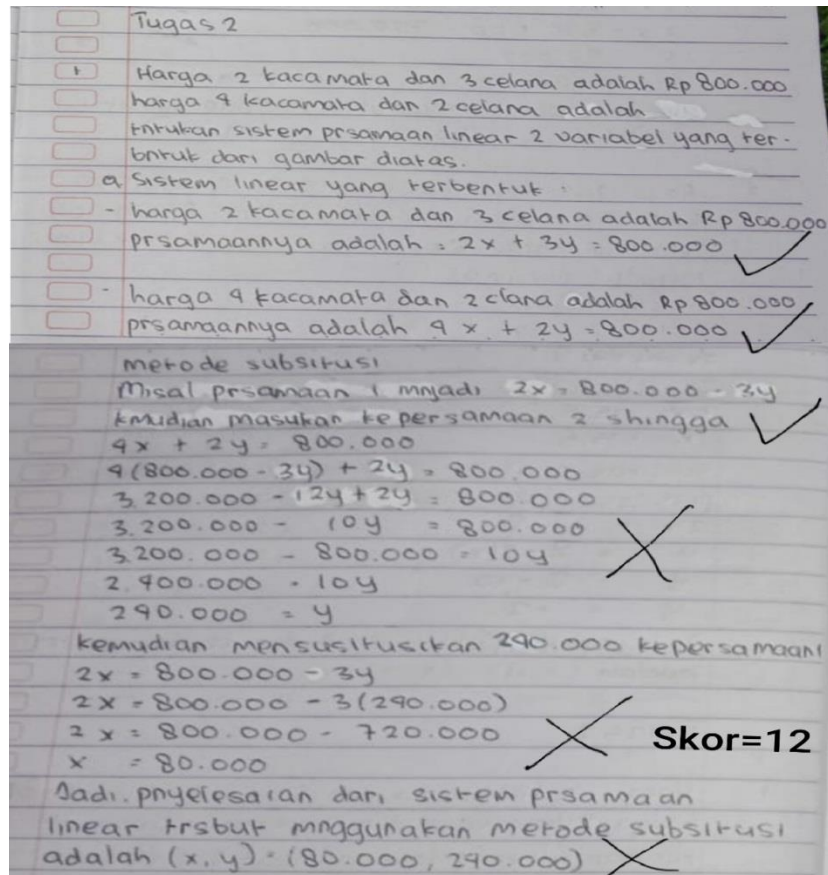 Tugas 2
1 Harga 2 kacamata dan 3 celana adalah Rp 800.000
harga 4 kacamata dan 2 celana adalah
tntukan sistem prsamaan linear 2 variabel yang ter-
bntuk dari gambar diatas.
a sistem linear yang terbentuk :
- harga 2 kacamata dan 3 celana adalah Rp 800.000
prsamaannya adalah : 2x + 3y = 800.000
- harga 4 kacamata dan 2 clana adalah Rp 800.000
prsamaannya adalah 4x + 2y = 800.000
metode subsitusi
Misal prsamaan 1 mnjadi 2x = 800.000 - 3y
kmudian masukan kepersamaan 2 shingga
4x + 2y = 800.000
4(800.000 - 3y) + 2y = 800.000
3.200.000 - 12y + 2y = 800.000
3.200.000 - 10y = 800.000
3.200.000 - 800.000 = 10y
2.400.000 = 10y
240.000 = y
kemudian mensusitusikan 240.000 kepersamaan1
2x = 800.000 - 3y
2x = 800.000 - 3(240.000)
2x = 800.000 - 720.000
Skor=12
x = 80.000
Jadi. pnyelesaian dari sistem prsamaan
linear trsbut mnggunakan metode subsitusi
adalah (x, y) = (80.000, 240.000)